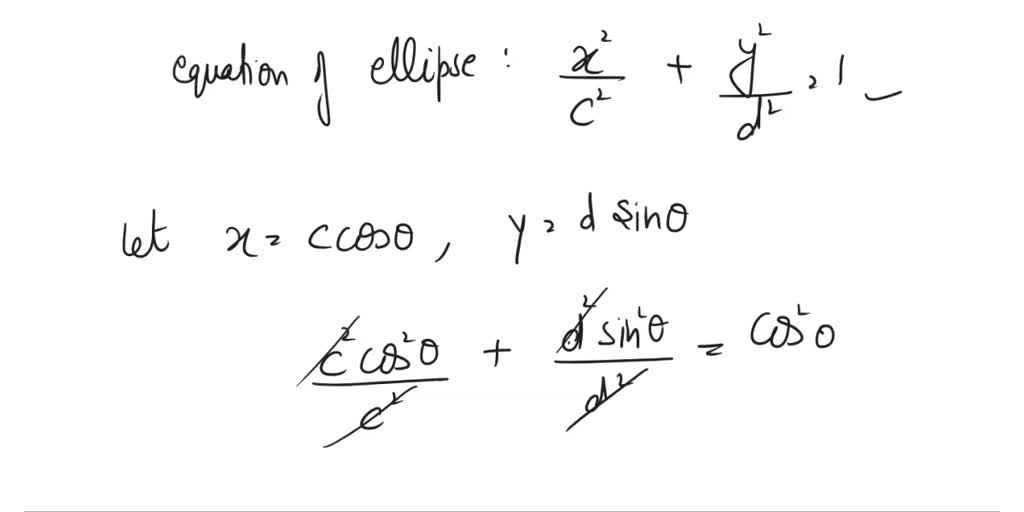 equation of ellipse : x²/c² + y²/d² = 1
let x = c cosθ , y = d sinθ
c² cos²θ/c² + d² sin²θ/d² = cos²θ